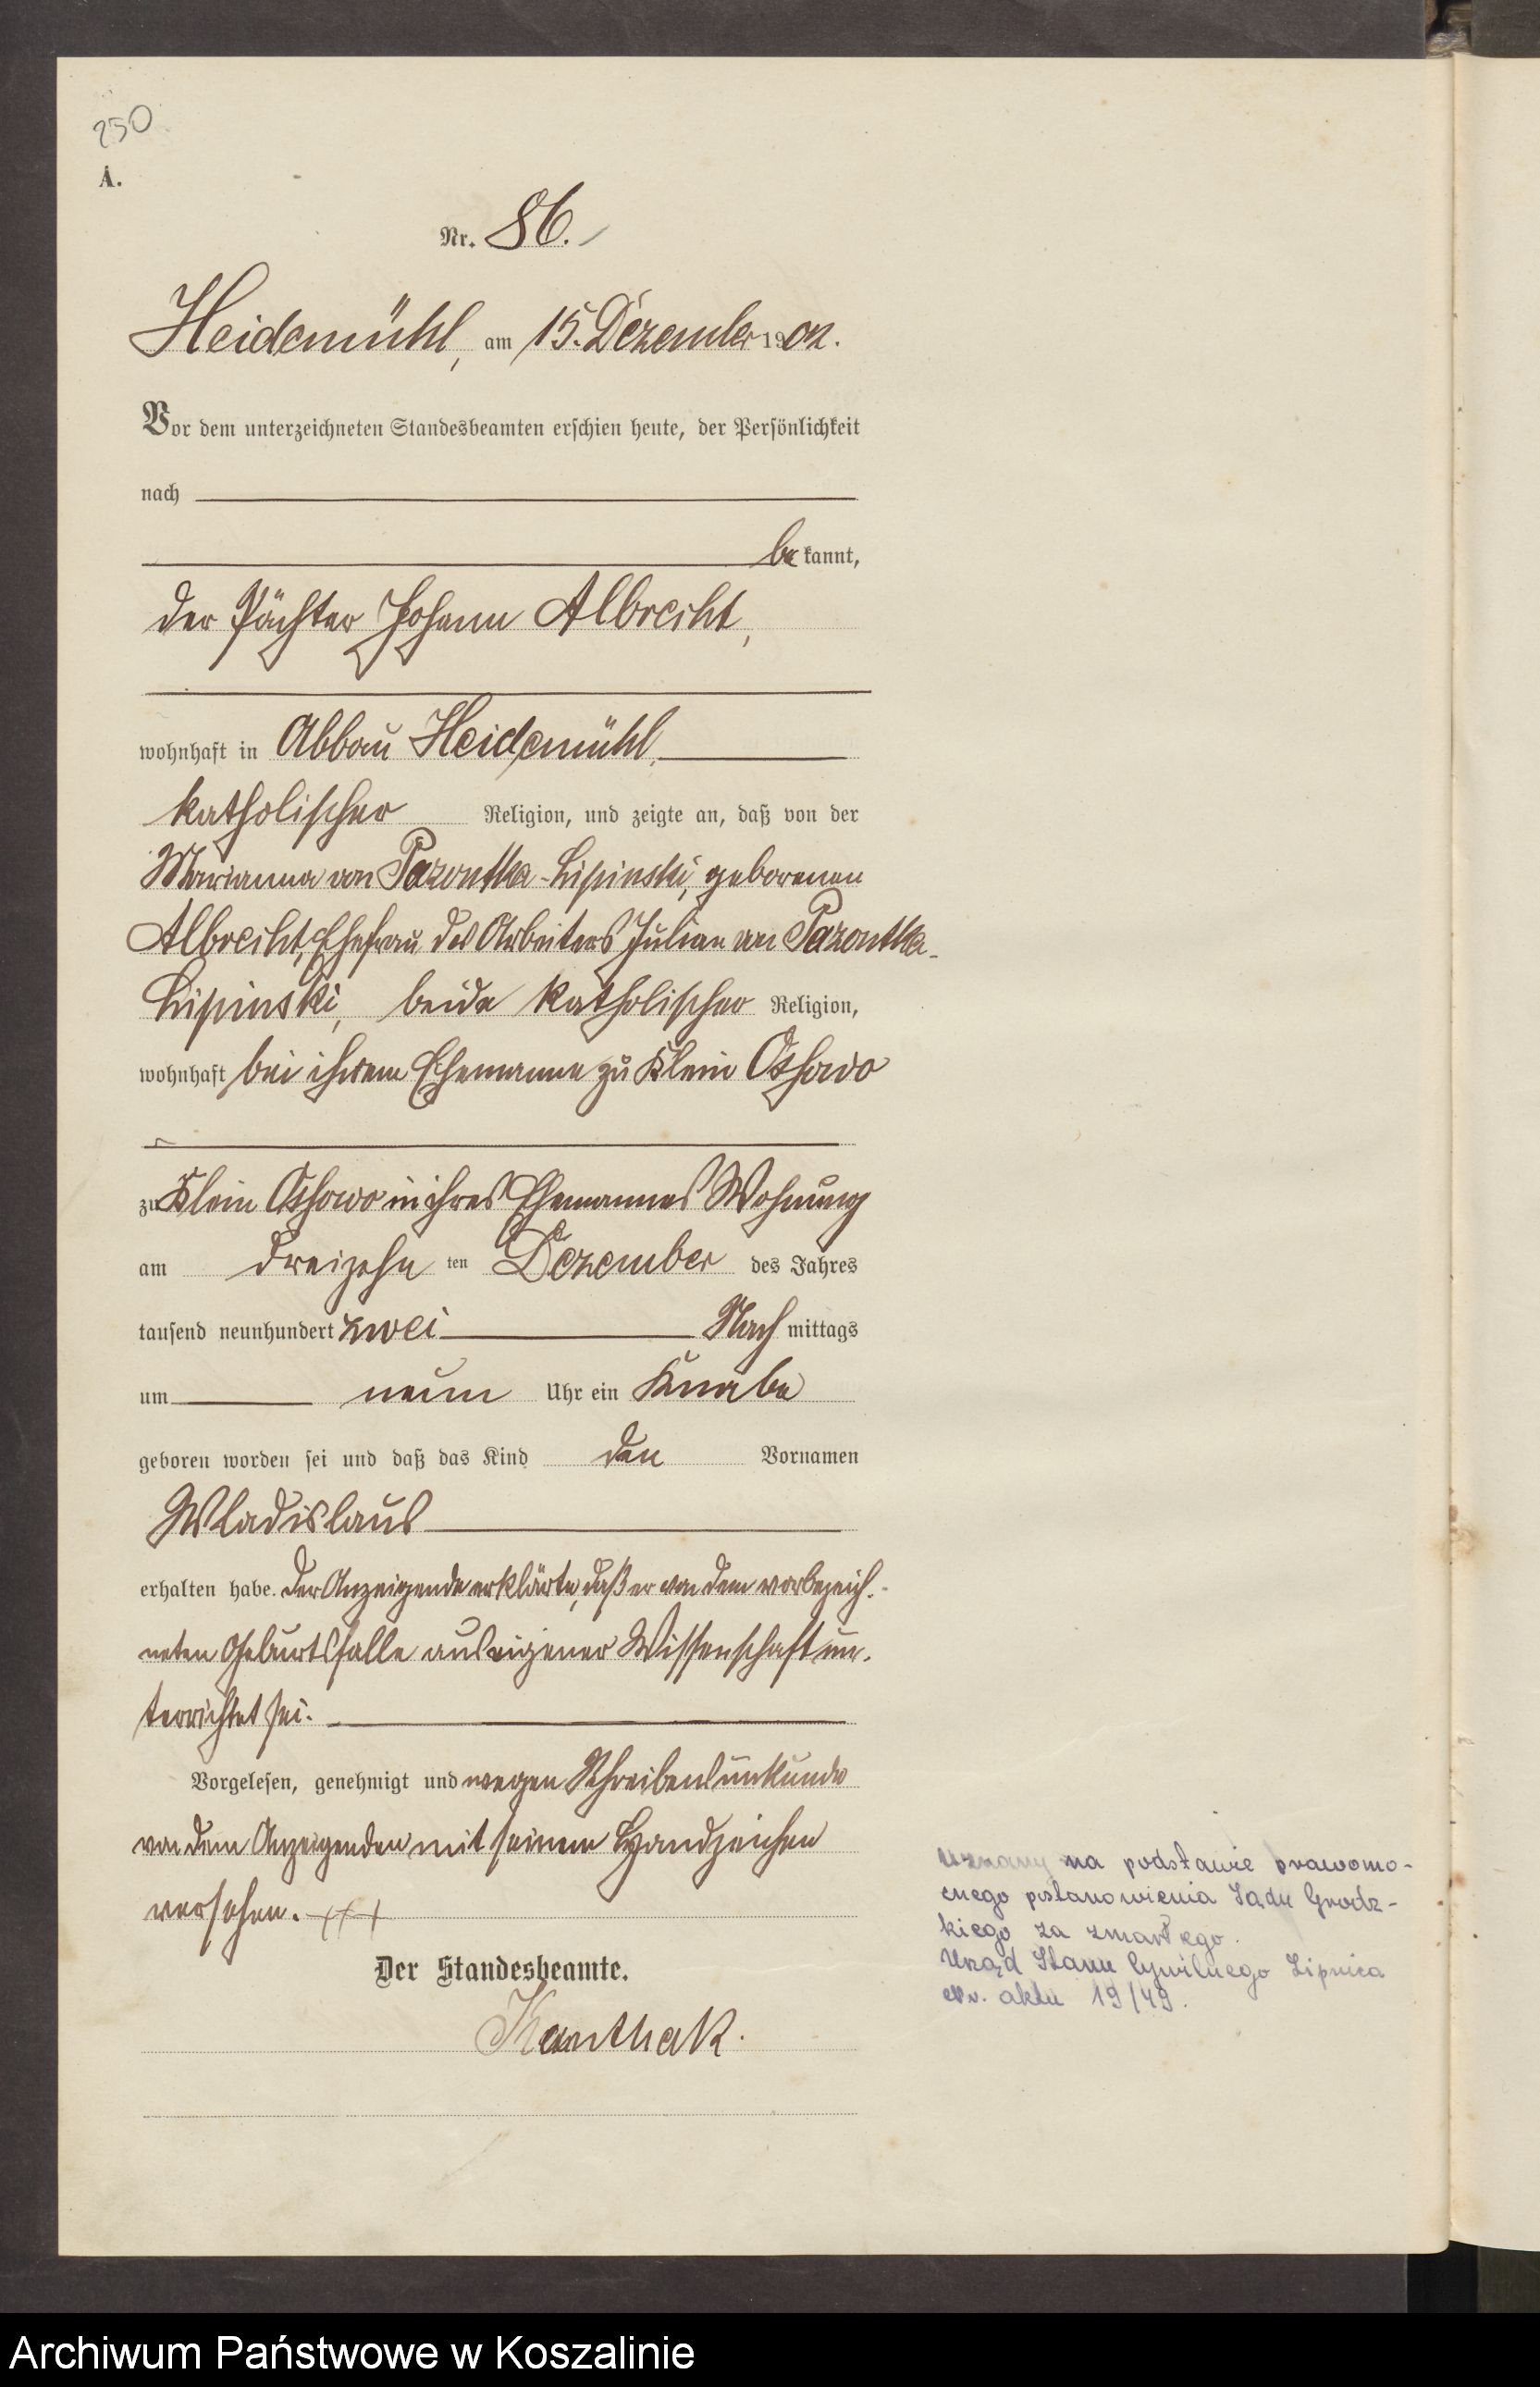 250
A.
Nr. 86.
Heidemühl, am 15. Dezember 1902.
Vor dem unterzeichneten Standesbeamten erschien heute, der Persönlichkeit
nach
be kannt,
der Pächter Johann Albrecht,
wohnhaft in Abbau Heidemühl,
katholischer Religion, und zeigte an, daß von der
Marianna von Pazontka-Lipinski, geborenen
Albrecht, Ehefrau des Arbeiters Julian von Pazontka-
Lipinski, beide katholischer Religion,
wohnhaft bei ihrem Ehemanne zu Klein Oshowo
zu Klein Oshowo in ihres Ehemannes Wohnung
am dreizehn ten Dezember des Jahres
tausend neunhundert zwei Nach mittags
um neun Uhr ein Knabe
geboren worden sei und daß das Kind den Vornamen
Wladislaus
erhalten habe. Der Anzeigende erklärte, daß er von dem vorbezeich-
neten Geburtsfalle aus eigener Wissenschaft un-
terrichtet sei.
Vorgelesen, genehmigt und wegen Schreibensunkunde
von dem Anzeigenden mit seinem Handzeichen
versehen. +++
Der Standesbeamte.
Kanthak.
Uznany na podstawie prawomo-
cnego postanowienia Sądu Grodz-
kiego za zmarłego.
Urząd Stanu Cywilnego Lipnica
aktu 19/49.
Archiwum Państwowe w Koszalinie